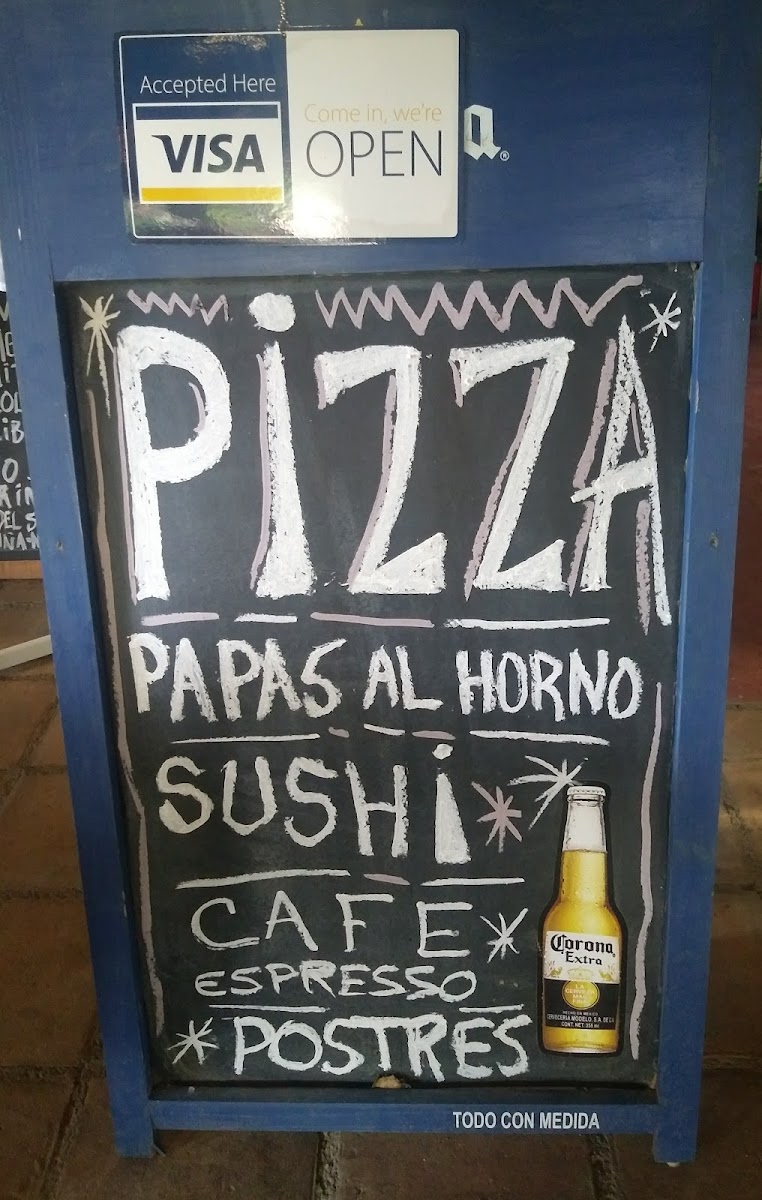 Accepted Here
VISA
Come in, we're
OPEN
a®
PiZZA
PAPAS AL HORNO
SUSHi
CAFE
ESPRESSO
POSTRES
Corona
Extra
LA
CERVEZA
MAS
FINA
HECHO EN MEXICO
CERVECERIA MODELO, S.A. DE C.V.
CONT. NET. 355 ml
TODO CON MEDIDA